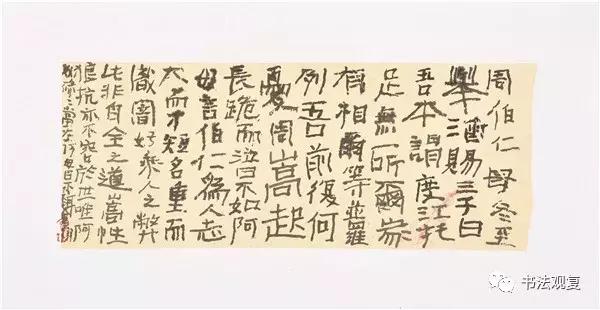 周伯仁母冬至
舉酒賜三子曰
吾本謂度江托
足無所爾家
有相爾等並羅
列吾前復何
憂周嵩起
長跪而泣曰不如阿
母言伯仁為人志
大而才短名重而
識闇好乘人之弊
此非自全之道嵩性
狼抗亦不容於世唯阿
奴碌〻當在阿母目下耳
书法观复